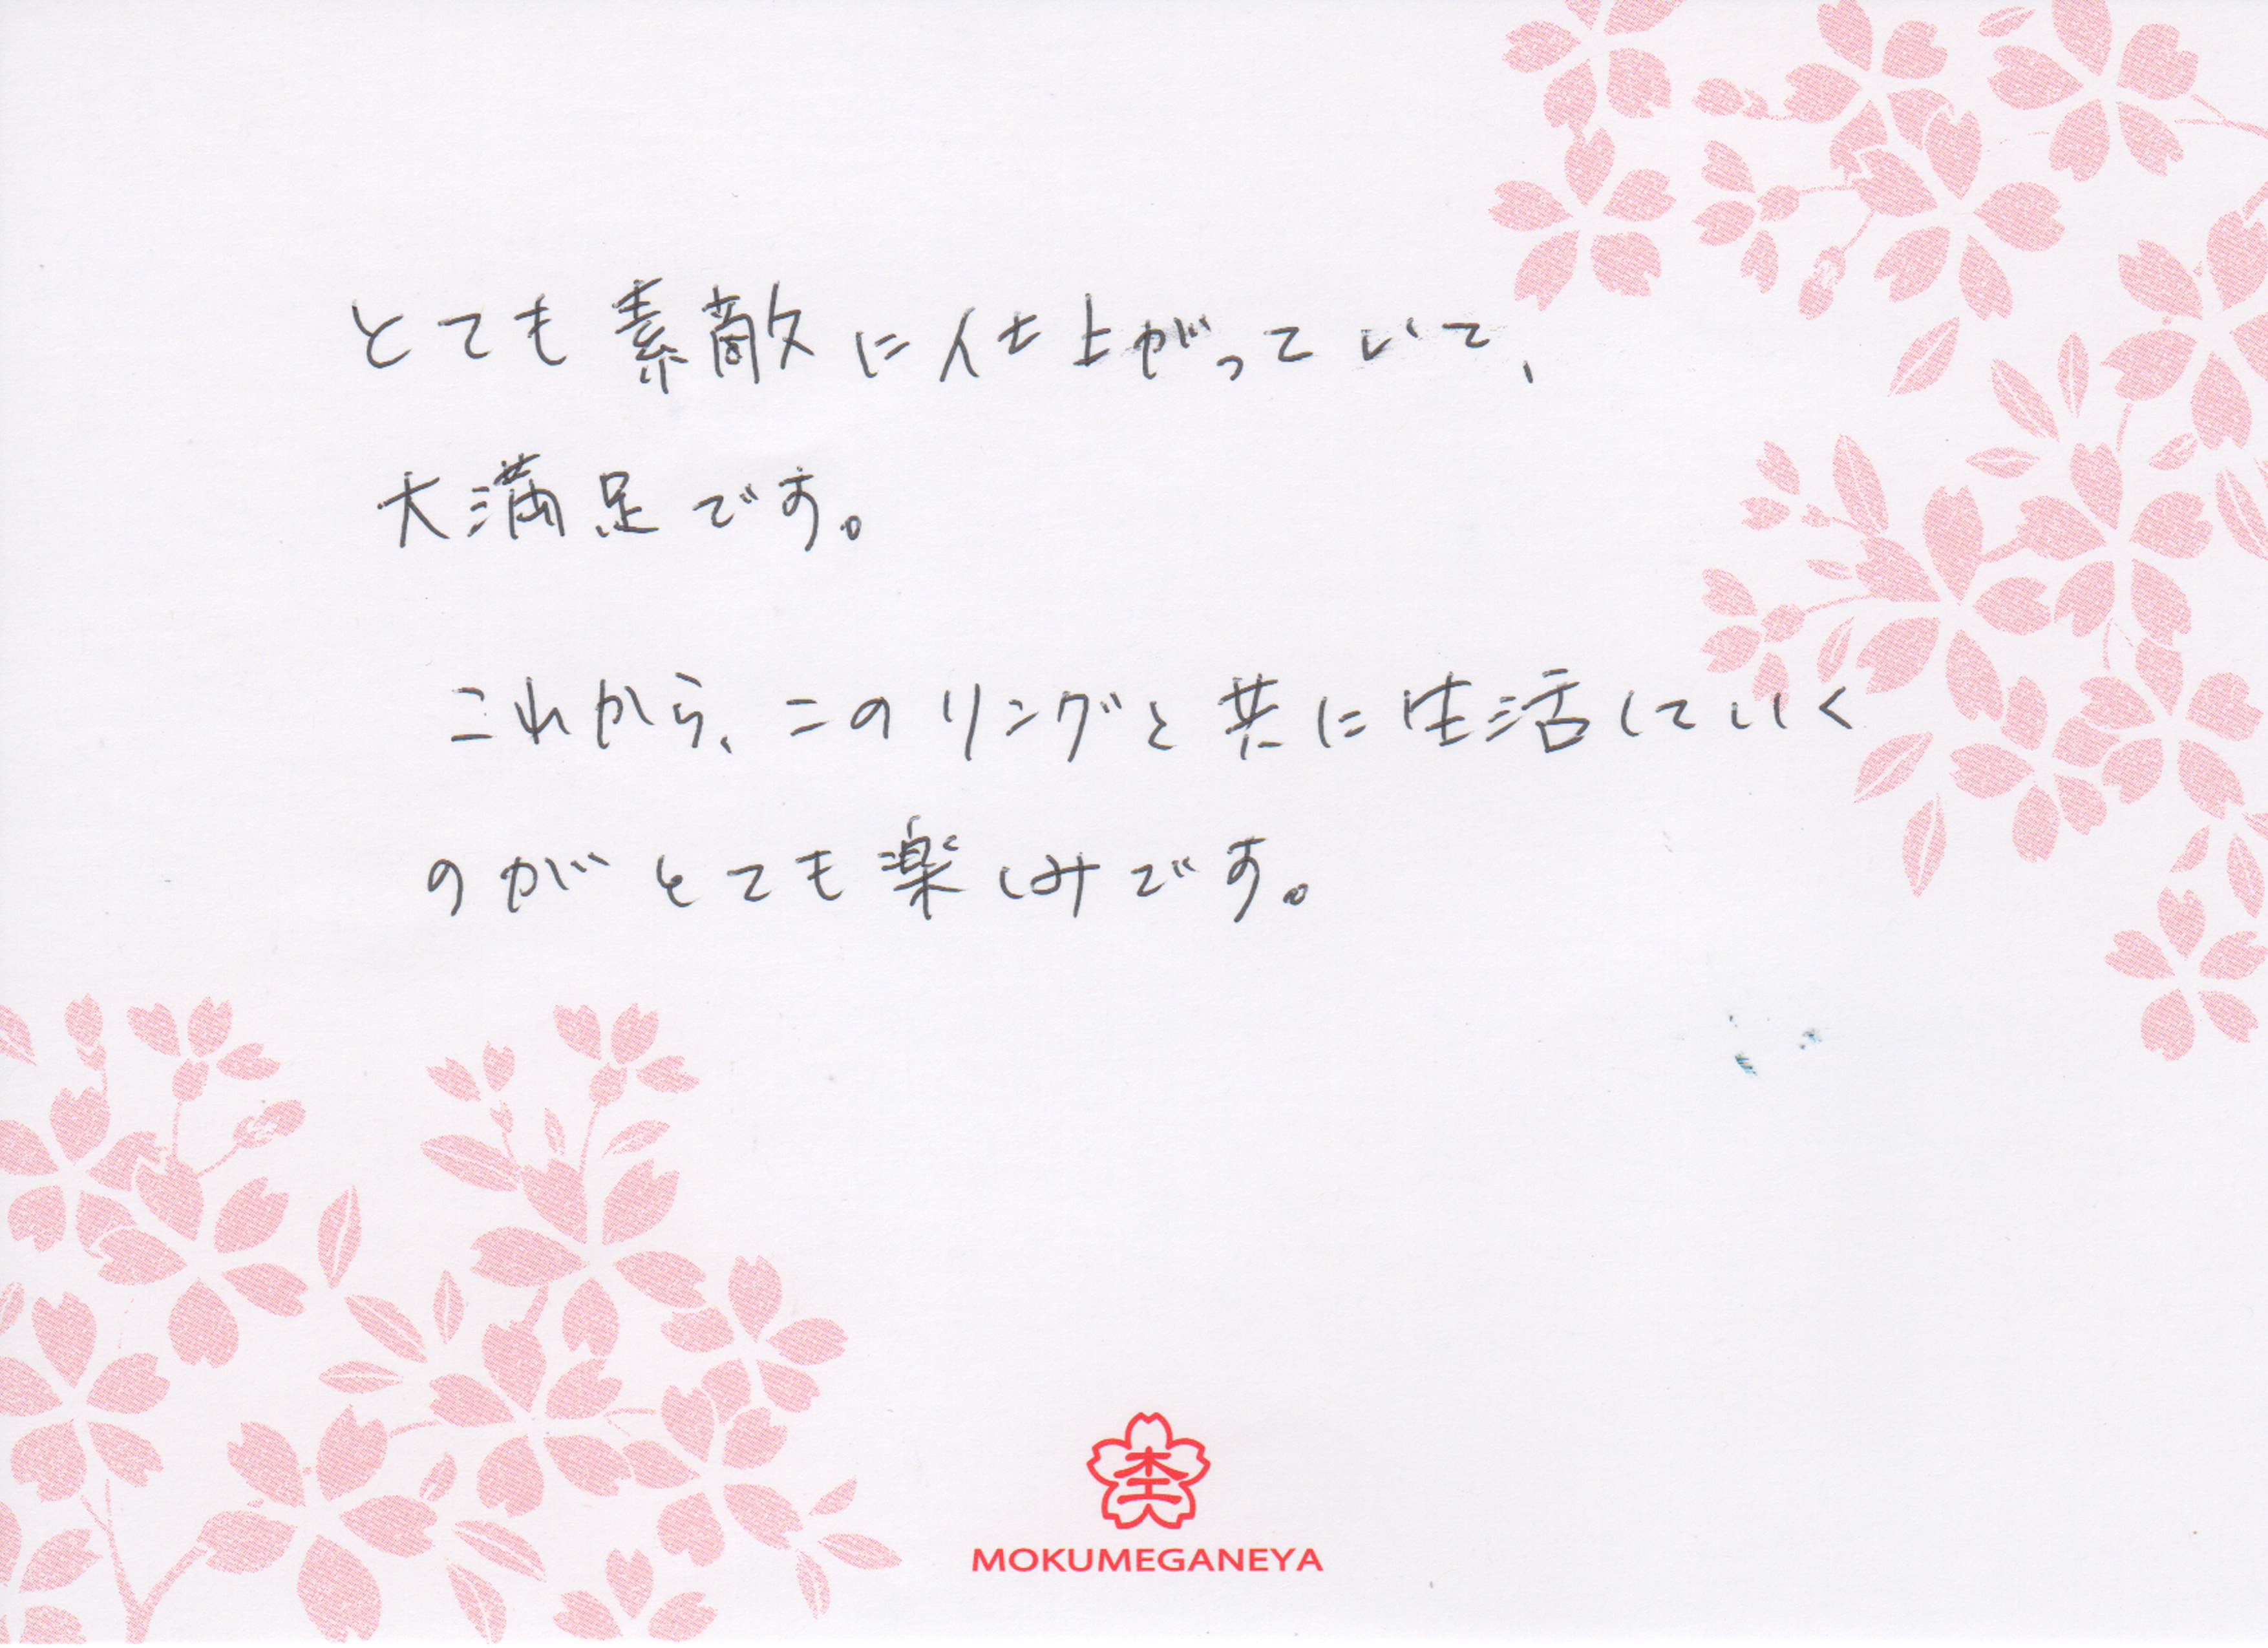 とても素敵に仕上がっていて、
大満足です。
これから、このリングと共に生活していく
のがとても楽しみです。
MOKUMEGANEYA